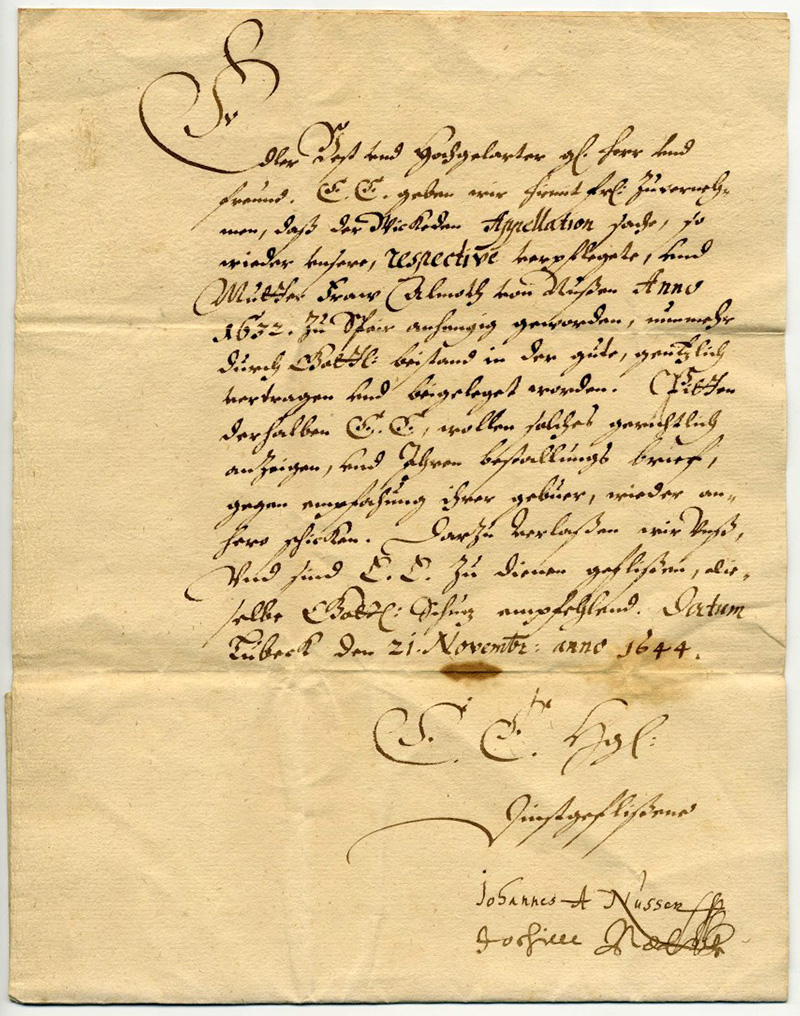 Edler Vest und Hochgelarter gl. Herr und
freund. E. E. geben wir hiemit frl: zuverneh=
men, daß der Wickeden Appellation sache, so
wieder unsere, respective verpflegete, und
Mutter Fraw von Nußen Anno
1632. Zu Speir anhengig geworden, nunmehr
durch Göttl: beistand in der gute, gentzlich
vertragen und beigeleget worden. Bitten
derhalben E. E., wollen solches gerichtlich
anzeigen, und Ihren bestallungs brief,
gegen empfahung ihrer gebüer, wieder an=
hero schicken. Darzu verlaßen wir Unß,
Und sind E. E. zu dienen geflißen, die=
selbe Göttl: Schutz empfehlend. Datum
Lübeck den 21. Novembr: anno 1644.
E. E. Hgl:
Dinstgeflißene
Johannes A Nussen
Jochim